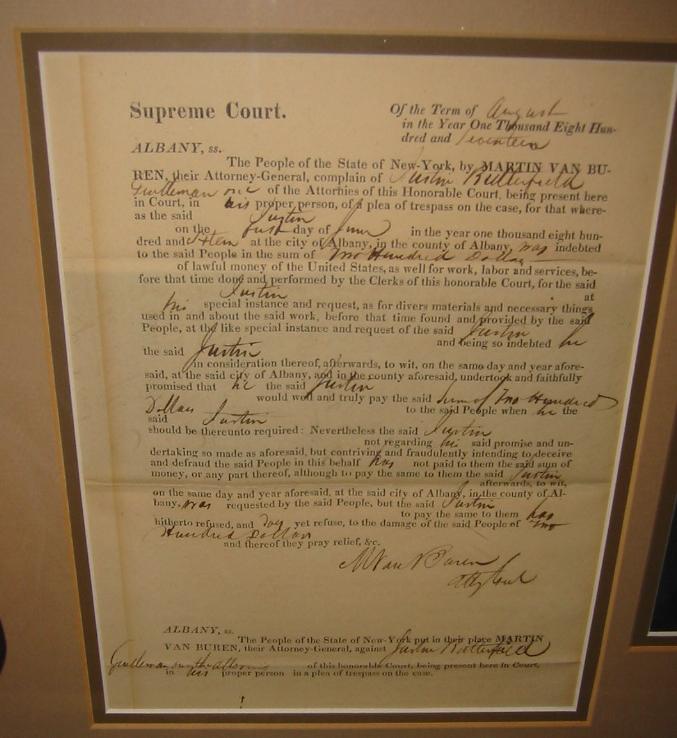 Supreme Court.
Of the Term of August
in the Year One Thousand Eight Hun-
dred and seventeen
ALBANY, ss.
The People of the State of New-York, by MARTIN VAN BU-
REN, their Attorney-General, complain of Justin Butterfield
Gentleman one of the Attornies of this Honorable Court, being present here
in Court, in his proper person, of a plea of trespass on the case, for that where-
as the said Justin
on the first day of June in the year one thousand eight hun-
dred and at the city of Albany, in the county of Albany, was indebted
to the said People in the sum of Two Hundred Dollars
of lawful money of the United States, as well for work, labor and services, be-
fore that time done and performed by the Clerks of this honorable Court, for the said
Justin at
his special instance and request, as for divers materials and necessary things
used in and about the said work, before that time found and provided by the said
People, at the like special instance and request of the said Justin
and being so indebted he
the said Justin
in consideration thereof, afterwards, to wit, on the same day and year afore-
said, at the said city of Albany, and in the county aforesaid, undertook and faithfully
promised that he the said Justin
would well and truly pay the said sum of Two Hundred
Dollars to the said People when he the
said Justin
should be thereunto required: Nevertheless the said Justin
not regarding his said promise and un-
dertaking so made as aforesaid, but contriving and fraudulently intending to deceive
and defraud the said People in this behalf has not paid to them the said sum of
money, or any part thereof, although to pay the same to them the said Justin
afterwards, to wit,
on the same day and year aforesaid, at the said city of Albany, in the county of Al-
bany, was requested by the said People, but the said Justin
to pay the same to them has
hitherto refused, and yet refuse, to the damage of the said People of Two
Hundred Dollars
and thereof they pray relief, &c.
M Van Buren
Atty Genl
ALBANY, ss.
The People of the State of New-York put in their place MARTIN
VAN BUREN, their Attorney-General, against Justin Butterfield
Gentleman of this honorable Court, being present here in Court,
in his proper person in a plea of trespass on the case.